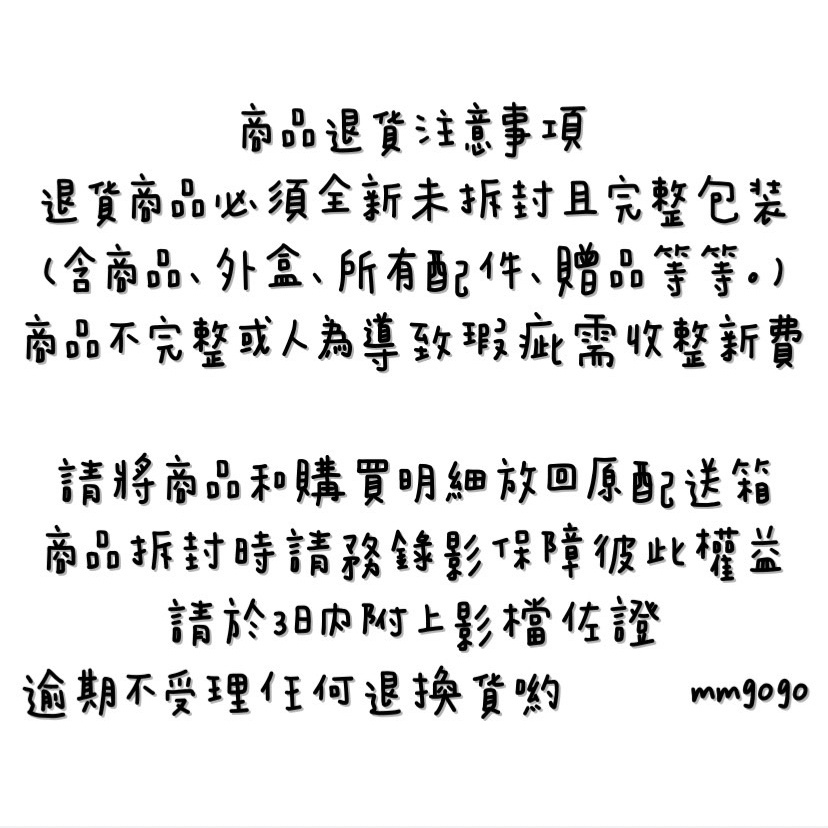 商品退貨注意事項
退貨商品必須全新未拆封且完整包裝
(含商品、外盒、所有配件、贈品等等。)
商品不完整或人為導致瑕疵需收整新費
請將商品和購買明細放回原配送箱
商品拆封時請務錄影保障彼此權益
請於3日內附上影檔佐證
逾期不受理任何退換貨喲 mmgogo